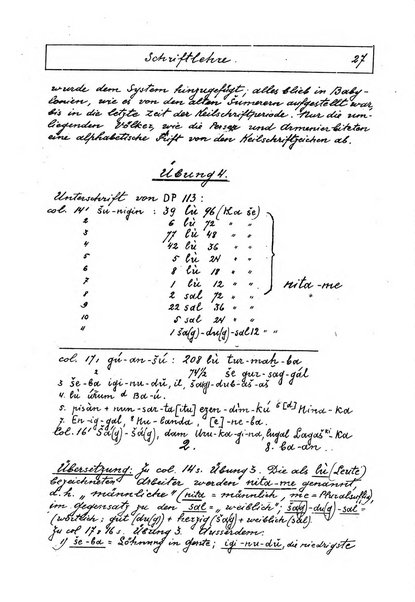 Schriftlehre. 27
wurde dem System hinzugefügt; alles blieb in Baby-
lonien, wie es von den alten Sumerern aufgestellt war,
bis in die letzte Zeit der Keilschriftperiode. Nur die um-
liegenden Völker, wie die Perser und Armenier leiteten
eine alphabetische Schrift von den Keilschriftzeichen ab.
Übung 4.
Unterschrift von DP 113:
col. 14, 1 šú-nigin: 39 lù 96 (ka še)
2 6 lù 72 " "
3 77 lù 48 " "
4 42 lù 36 " "
5 5 lù 24 " "
6 8 lù 18 " "
7 1 lù 12 " " nita-me
8 2 sal 72 " "
9 22 sal 36 " "
10 5 sal 24 " "
11 1 šà(g)-du(g)-sal 12 " "
col. 17, 1 gú-an-šú: 208 lù tur-maḫ-ba
2 74/2 še gur-sag-gál
3 še-ba igi-nu-dŭ, il, šàg-dub-aš-aš
4. lù úrum d Ba-ú.
5. pisàn + nun-sar-ta[itu] ezen-dìm-kú d Nina-ka
7. En-ig-gal, Nu-banda, [e]-ne-ba.
col. 16, šà(g)-šà(g), dam Uru-ka-gi-na, lugal Lagaš-ka
2. 3. ba-an.
Übersetzung: Zu col. 14 s. Übung 3. Die als lù (Leute)
bezeichneten Arbeiter werden nita-me genannt,
d. h. „männliche" (nita = männlich, me = Pluralsuffix),
im gegensatz zu den sal = „weiblich"; šà(g)-du(g)-sal =
(wörtlich: gut (du(g) + herzig (šà(g) + weiblich (sal).
Zu col. 17 & 16 s. Übung 3. Ausserdem:
1) še-ba = Löhnung in gerste; igi-nu-dŭ, die niedrigste